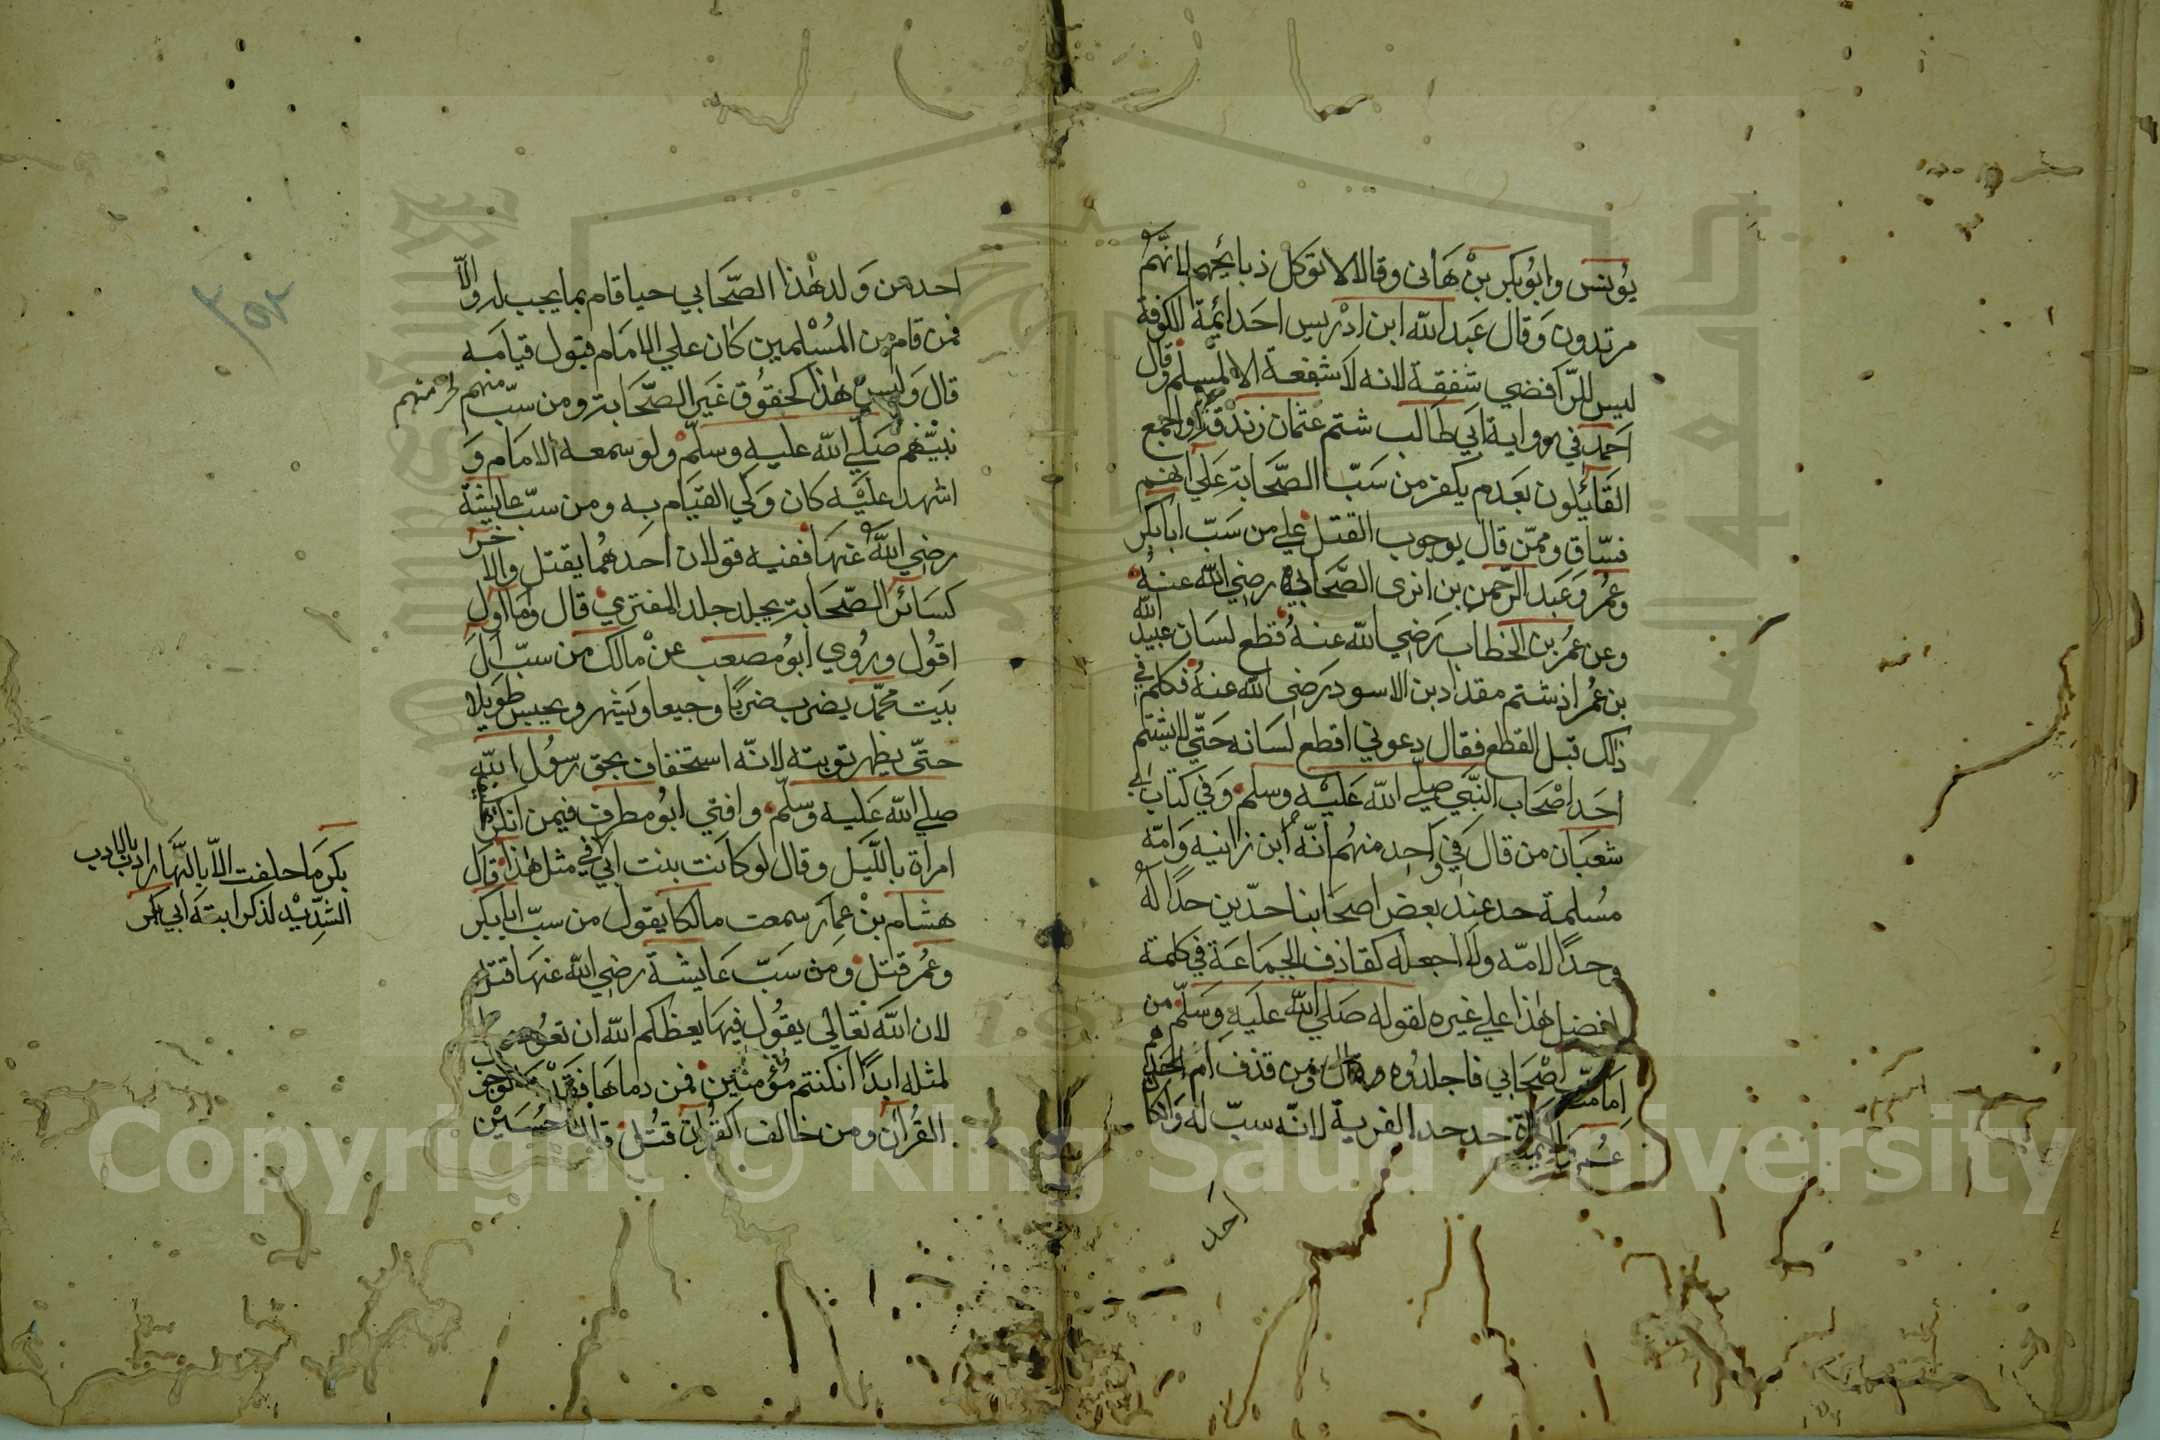 يونس وابو بكر بن هانى وقالا لا توكل ذبايحهم لانهم
مرتدون وقال عبد الله ابن ادريس احد ائمة الكوفة
ليس للرافضي شفقة لانه لا شفعة الا لمسلم وقال
احمد في رواية ابي طالب شتم عثمان زندقة واجمع
القائلون بعدم يكفر من سب الصحابة علي انهم
فساق وممن قال بوجوب القتل علي من سب ابا بكر
وعمر وعبد الرحمن بن ابزى الصحابي رضي الله عنه
وعن عمر بن الخطاب رضي الله عنه قطع لسان عبيد الله
بن عمر اذ شتم مقداد بن الاسود رضى الله عنه فكلم في
ذلك قبل القطع فقال دعوني اقطع لسانه حتي لا يشتم
احد اصحاب النبي صلي الله عليه وسلم وفي كتاب ابي
شعبان من قال في واحد منهم انه ابن زانيه وامه
مسلمة حد عند بعض اصحابنا حدين حدا له
وحدا لامه ولا اجعله كقاذف الجماعة في كلمة
لفضل هذا علي غيره لقوله صلي الله عليه وسلم من
اصحابي فاجلدوه ومن قذف ام احدهم
حد حد الفرية لانه سب له
احد
احد من ولد هذا الصحابي حيا قام بما يجب له والا
فمن قام من المسلمين كان علي الامام قبول قيامه
قال وليس هذا كحقوق غير الصحابة ومن سب منهم
نبيهم صلي الله عليه وسلم ولو سمعه الامام و
اشهد عليه كان ولي القيام به ومن سب عايشة
رضي الله عنها ففيه قولان احدهما يقتل والاخر
كسائر الصحابة يجلد جلد المفتري قال وما اول
اقول وروي ابو مصعب عن مالك من سب ال
بيت محمد يضرب ضربا وجيعا ويشهر ويحبس طويلا
حتي يظهر توبته لانه استخفاف بحق رسول الله
صلي الله عليه وسلم وافتي ابو مطرف فيمن انكر
امراة بالليل وقال لو كانت بنت ابي في مثل هذا قال
هشام بن عمار سمعت مالكا يقول من سب ابا بكر
وعمر قتل ومن سب عايشة رضي الله عنها قتل
لان الله تعالي يقول فيها يعظكم الله ان تعودوا
لمثله ابدا ان كنتم مؤمنين فمن رماها فقد
القران ومن خالف القران قتل
بكر ما حلفت الا بالنهار ادب بالادب
الشديد لذكر ابنة ابي بكر